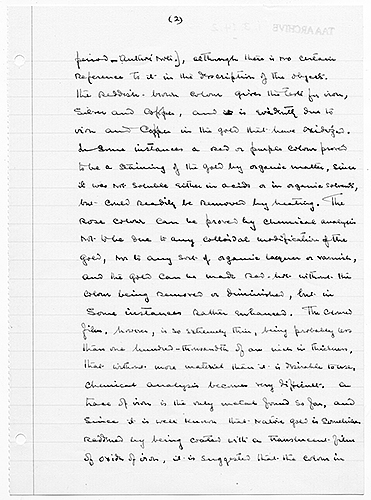 (2)
TAA ARCHIVE
period - Author's Note.], although there is no certain
reference to it in the description of the objects.
The Reddish-brown colour gives the tests for iron,
Silver and Copper, and is evidently due to
iron and Copper in the gold that have oxidized.
In Some instances a red or purple colour proved
to be a staining of the gold by organic matter, since
it was not soluble either in acids or in organic solvents,
but could readily be removed by heating. The
Rose Colour can be proved by chemical analysis
not to be due to any colloidal modification of the
gold, nor to any sort of organic lacquer or varnish,
and the gold can be made red-hot without the
colour being removed or diminished, but in
Some instances rather enhanced. The coloured
film, however, is so extremely thin, being probably less
than one hundred-thousandth of an inch in thickness,
that without more material than it is desirable to use,
chemical analysis becomes very difficult. A
trace of iron is the only metal found so far, and
Since it is well known that Native gold is sometimes
reddened by being coated with a translucent film
of oxide of iron, it is suggested that the colour in